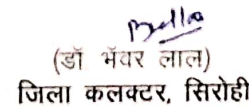 (डॉ भॅवर लाल)
जिला कलक्टर, सिरोही